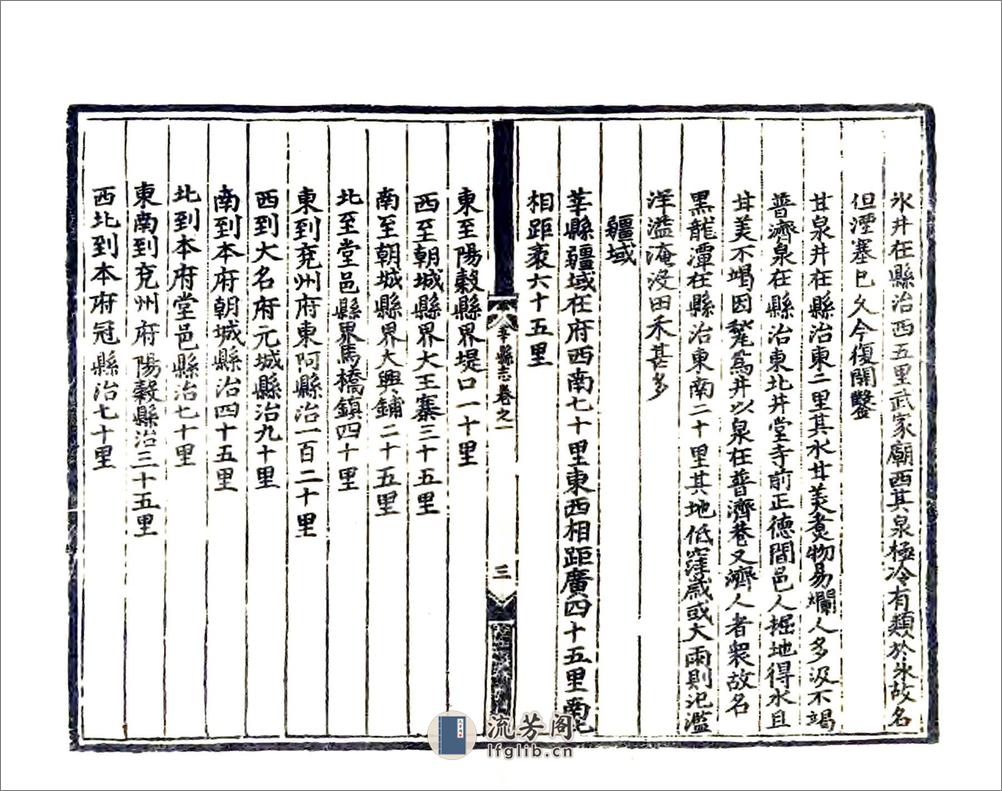 氷井在縣治西五里武家廟西其泉極冷有類於氷故名
但湮塞已久今復開鑿
甘泉井在縣治東二里其水甘美煮物易爛人多汲不竭
普濟泉在縣治東北井堂寺前正德間邑人掘地得水且
甘美不竭因甃爲井以泉在普濟巷又濟人者衆故名
黑龍潭在縣治東南二十里其地低窪歲或大雨則氾濫
洋溢淹沒田禾甚多
疆域
莘縣疆域在府西南七十里東西相距廣四十五里南北
相距袤六十五里
莘縣志卷之一
三
東至陽穀縣界堤口一十里
西至朝城縣界大王寨三十五里
南至朝城縣界大興鋪二十五里
北至堂邑縣界馬橋鎮四十里
東到兗州府東阿縣治一百二十里
西到大名府元城縣治九十里
南到本府朝城縣治四十五里
北到本府堂邑縣治七十里
東南到兗州府陽穀縣治三十五里
西北到本府冠縣治七十里
流芳阁
lfglib.cn